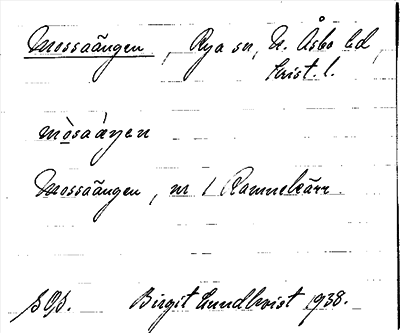 Mossaängen, Rya sn, N. Åsbo hd,
Krist. l.
mòsaáŋen
Mossaängen, nr 1 Ramnekärr.
Birgit Lundkvist 1938.